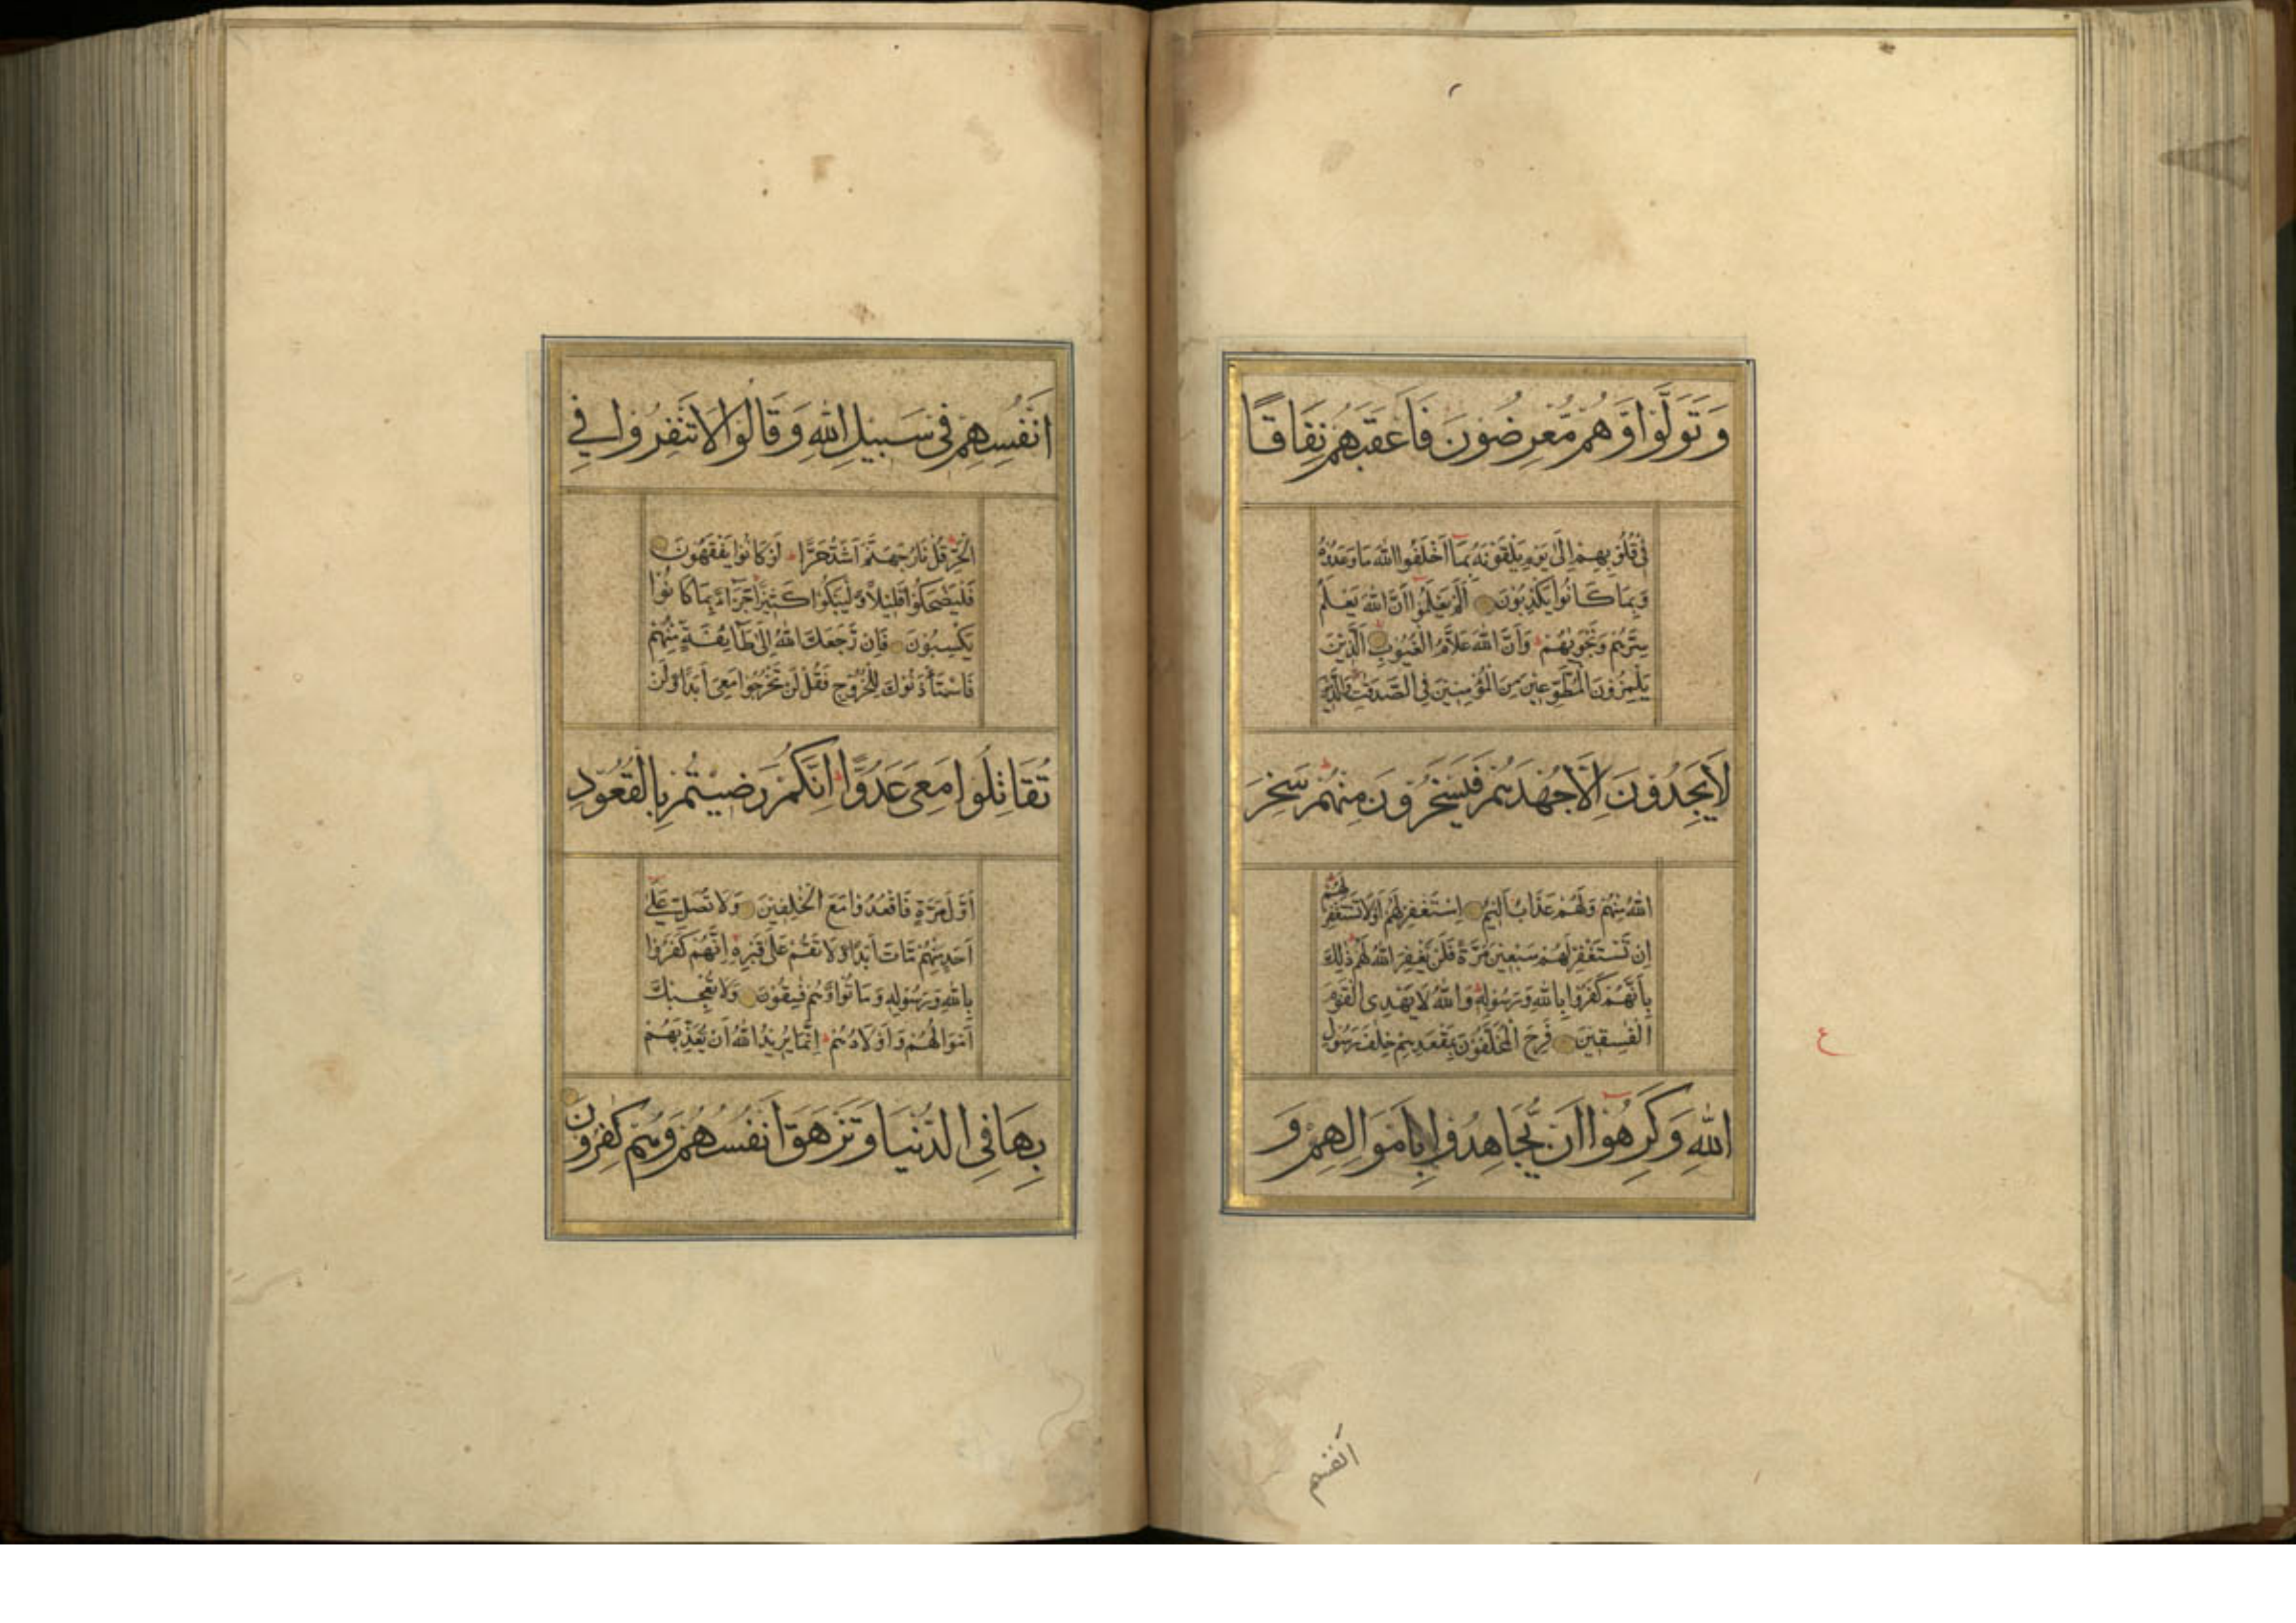 وَتَوَلَّوْا وَّهُمْ مُّعْرِضُونَ فَاَعْقَبَهُمْ نِفَاقًا
فِي قُلُوْبِهِمْ اِلَى يَوْمِ يَلْقَوْنَهُ بِمَا اَخْلَفُوا اللهَ مَا وَعَدُوْهُ
وَبِمَا كَانُوا يَكْذِبُوْنَ اَلَمْ يَعْلَمُوا اَنَّ اللهَ يَعْلَمُ
سِرَّهُمْ وَنَجْوٰىهُمْ وَاَنَّ اللهَ عَلَّامُ الْغُيُوْبِ اَلَّذِيْنَ
يَلْمِزُوْنَ الْمُطَّوِّعِيْنَ مِنَ الْمُؤْمِنِيْنَ فِي الصَّدَقٰتِ وَالَّذِيْنَ
لَا يَجِدُوْنَ اِلَّا جُهْدَهُمْ فَيَسْخَرُوْنَ مِنْهُمْ سَخِرَ
اللهُ مِنْهُمْ وَلَهُمْ عَذَابٌ اَلِيْمٌ اِسْتَغْفِرْ لَهُمْ اَوْ لَا تَسْتَغْفِرْ لَهُمْ
اِنْ تَسْتَغْفِرْ لَهُمْ سَبْعِيْنَ مَرَّةً فَلَنْ يَّغْفِرَ اللهُ لَهُمْ ذٰلِكَ
بِاَنَّهُمْ كَفَرُوْا بِاللهِ وَرَسُوْلِهٖ وَاللهُ لَا يَهْدِى الْقَوْمَ
الْفٰسِقِيْنَ فَرِحَ الْمُخَلَّفُوْنَ بِمَقْعَدِهِمْ خِلٰفَ رَسُوْلِ
اللهِ وَكَرِهُوْا اَنْ يُّجَاهِدُوْا بِاَمْوَالِهِمْ وَ
ع
انفسهم
اَنْفُسِهِمْ فِى سَبِيْلِ اللهِ وَقَالُوْا لَا تَنْفِرُوْا فِي
الْحَرِّ قُلْ نَارُ جَهَنَّمَ اَشَدُّ حَرًّا لَوْ كَانُوْا يَفْقَهُوْنَ
فَلْيَضْحَكُوْا قَلِيْلًا وَّلْيَبْكُوْا كَثِيْرًا جَزَآءً بِمَا كَانُوْا
يَكْسِبُوْنَ فَاِنْ رَّجَعَكَ اللهُ اِلٰى طَآئِفَةٍ مِّنْهُمْ
فَاسْتَأْذَنُوْكَ لِلْخُرُوْجِ فَقُلْ لَنْ تَخْرُجُوْا مَعِيَ اَبَدًا وَّلَنْ
تُقَاتِلُوْا مَعِيَ عَدُوًّا اِنَّكُمْ رَضِيْتُمْ بِالْقُعُوْدِ
اَوَّلَ مَرَّةٍ فَاقْعُدُوْا مَعَ الْخٰلِفِيْنَ وَلَا تُصَلِّ عَلٰى
اَحَدٍ مِّنْهُمْ مَّاتَ اَبَدًا وَّلَا تَقُمْ عَلٰى قَبْرِهٖ اِنَّهُمْ كَفَرُوْا
بِاللهِ وَرَسُوْلِهٖ وَمَاتُوْا وَهُمْ فٰسِقُوْنَ وَلَا تُعْجِبْكَ
اَمْوَالُهُمْ وَاَوْلَادُهُمْ اِنَّمَا يُرِيْدُ اللهُ اَنْ يُّعَذِّبَهُمْ
بِهَا فِى الدُّنْيَا وَتَزْهَقَ اَنْفُسُهُمْ وَهُمْ كٰفِرُوْنَ